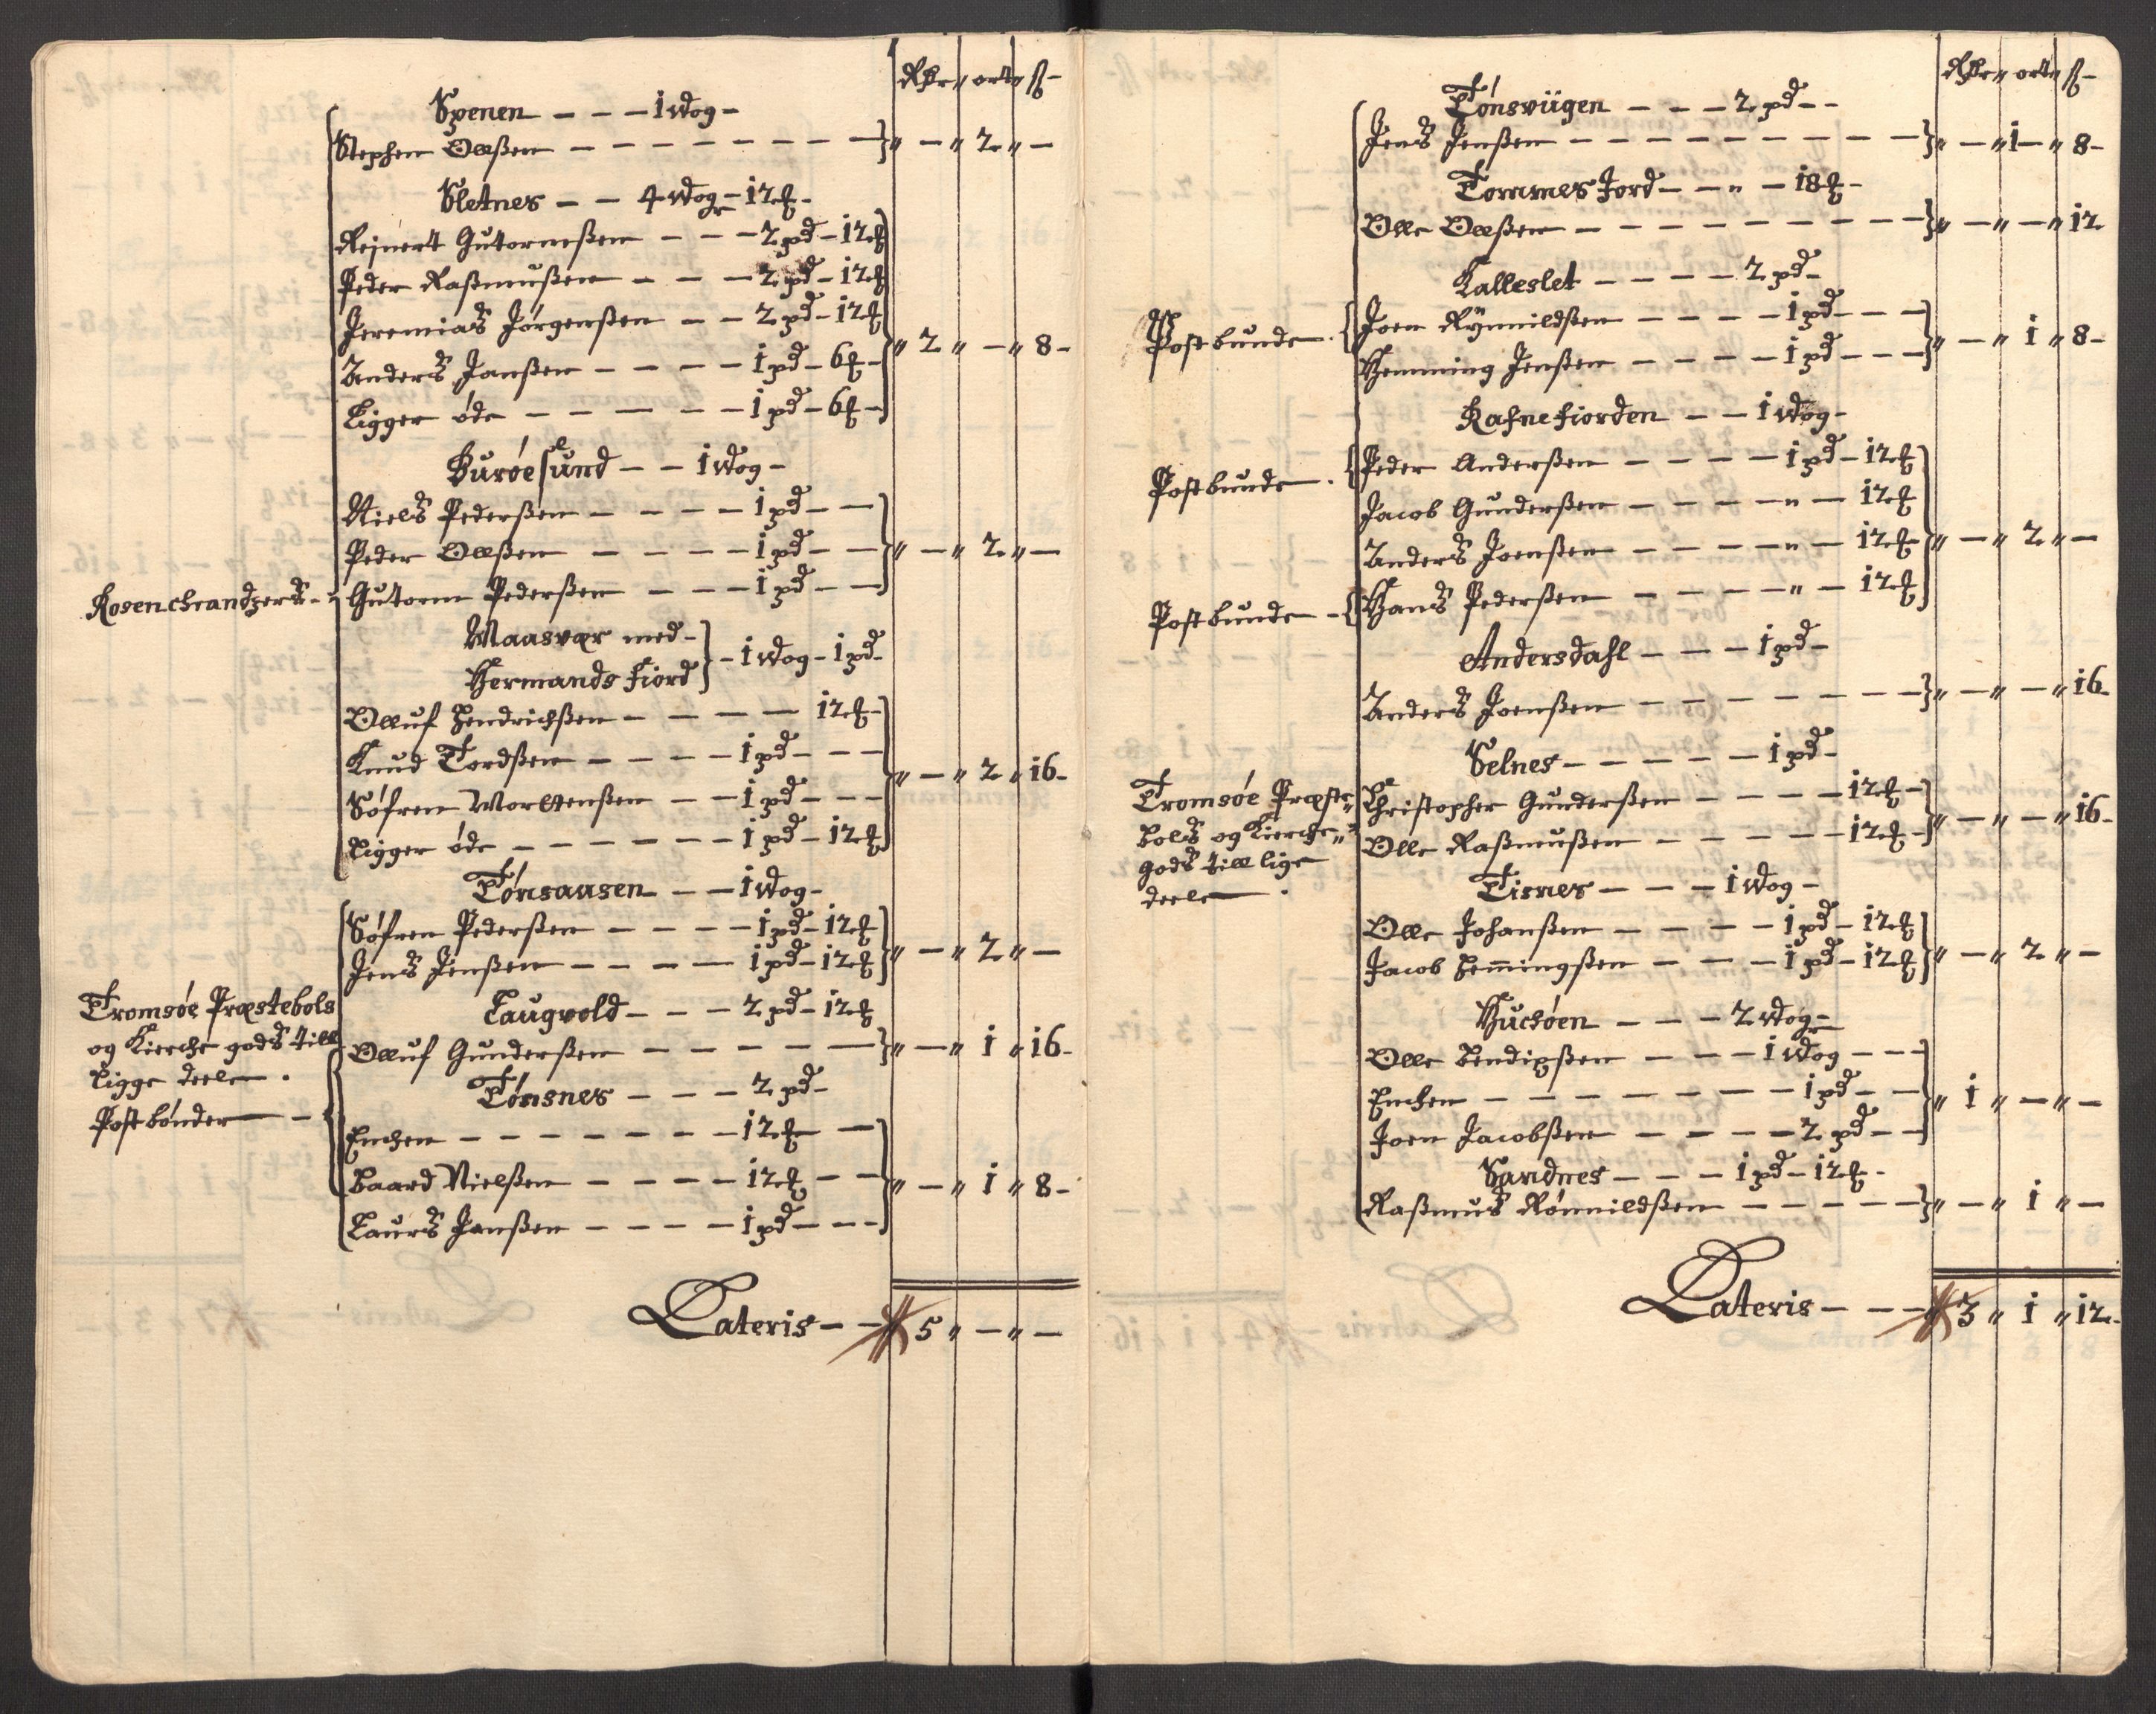 Rdr " ort " ß -
Spenen - - - 1 wog -
Stephen Ollßen - - - - - - - - - } " - " 2 " -
Sletnes - - 4 wogr - 12 ℔ -
Rejnert Gutormßen - - - 2 pd - 12 ℔
Peder Raßmußen - - - 2 pd - 12 ℔
Jeremias Jørgenßen - - 2 pd - 12 ℔
Anders Janßen - - - - 1 pd - 6 ℔ - } " 2 " - " 8 -
Ligger øde - - - - - 1 pd - 6 ℔ -
Burøesund - - 1 wog -
Niels Pederßen - - - - 1 pd - -
Peder Ollßen - - - - 1 pd - - } " - " 2 " -
Rosenchrandzers - Gutorm Pederßen - - - 1 pd - -
Maasvær med -
Hermands fiord } - 1 wog - 1 pd -
Olluf Hendrichßen - - - - - 12 ℔ -
Knud Tordßen - - - - 1 pd - - -
Søfren Mortenßen - - 1 pd - - - } " - " 2 " 16 -
Ligger øde - - - - - - 1 pd - 12 ℔
Tønsausen - - 1 wog -
Søfren Pederßen - - - - 1 pd - 12 ℔
Jens Jenßen - - - - 1 pd - 12 ℔ } " - " 2 " -
Tromsøe Præstebols
og Kierche gods till
ligge deele .
Postbønder - -
Laugvold - - - 2 pd - 12 ℔
Olluf Gunderßen - - - - - - } " - " 1 " 16 -
Tønsnes - - - 2 pd -
Enchen - - - - - - - 12 ℔ - -
Baard Nielßen - - - - 12 ℔ - - } " - " 1 " 8 -
Laurs Janßen - - - - 1 pd - - -
Lateris - - 5 " - " -
Rdr " ort " ß -
Tønsviigen - - - 2 pd - -
Jens Jenßen - - - - - - - - - } " - " 1 - " 8 -
Tommes Jord - - " - 18 ℔ -
Olle Ollßen - - - - - - - - - } " - " - " 12
Kalleslet - - - - 2 pd -
Postbunde . { Joen Rynnildßen - - - - 1 pd - - -
Hemming Jenßen - - - - 1 pd - - - } " - " 1 " 8 -
Rafnefiorden - - 1 wog -
Postbunde . { Peder Anderßen - - - - 1 pd - 12 ℔
Jacob Gunderßen - - - - " - 12 ℔
Anders Joenßen - - - - " - 12 ℔ } " - " 2 " -
Postbunde - { Hans Pederßen - - - - " - 12 ℔
Andersdahl - - - 1 pd -
Anders Joenßen - - - - - - - - } " - " - " 16 -
Selnes - - - - - 1 pd -
Tromsøe Præste-
bols og Kierche-
gods till lige
deele .
Christopher Gunderßen - - - - 12 ℔ -
Olle Raßmußen - - - - - 12 ℔ - } " - " - " 16 -
Tisnes - - - 1 wog -
Olle Johanßen - - - - 1 pd - 12 ℔
Jacob Hem̄ingßen - - - 1 pd - 12 ℔ } " - " 2 " -
Huchøen - - - 2 wogr -
Olle Bendixßen - - - 1 wog - - -
Enchen - - - - - - - - 1 pd - - } " 1 " - " -
Joen Jacobßen - - - - - 2 pd - -
Sandnes - - - 1 pd - 12 ℔ -
Raßmus Rønnildßen - - - - - } " - " 1 " -
Lateris - - - 3 " 1 " 12 -